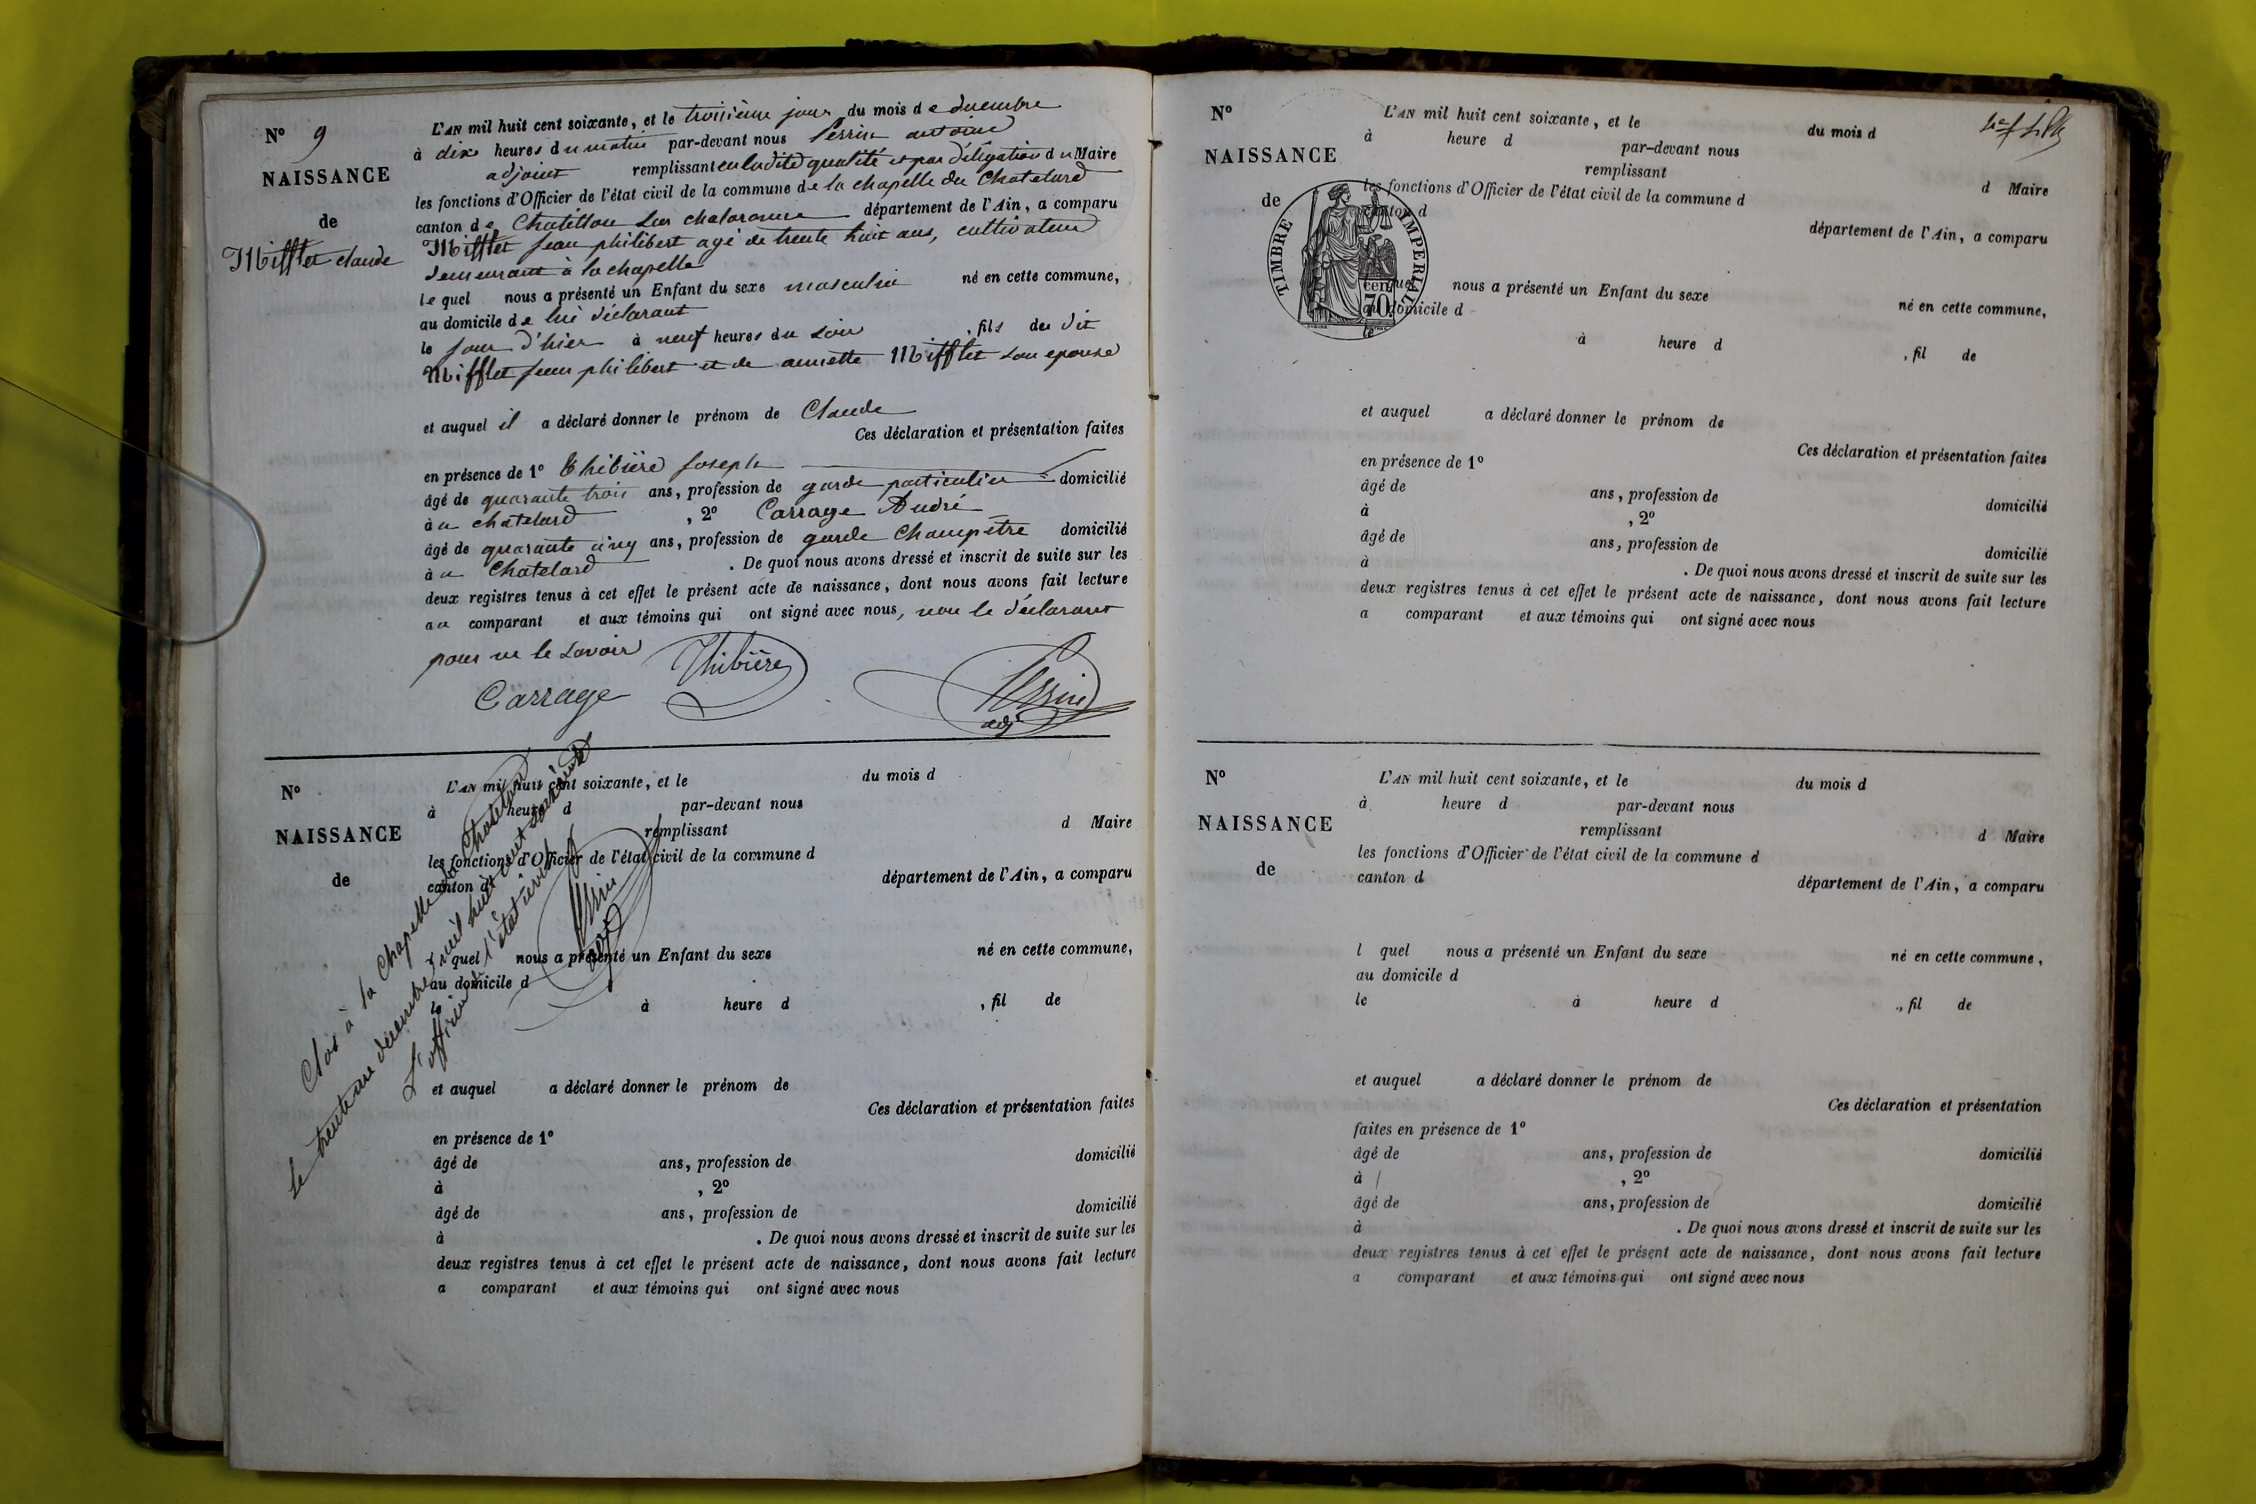 N° 9
NAISSANCE
de
Mifflet claude
L'AN mil huit cent soixante, et le troisième jour du mois de decembre
à dix heures du matin par-devant nous Perrin antoine
adjoint remplissant en ladite qualité et par délégation du Maire
les fonctions d'Officier de l'état civil de la commune de la chapelle du Chatelard
canton de Chatillon sur chalaronne département de l'Ain, a comparu
Mifflet jean philibert agé de trente huit ans, cultivateur
demeurant à la chapelle
lequel nous a présenté un Enfant du sexe masculin né en cette commune,
au domicile de lui déclarant
le jour d'hier à neuf heures du soir, fils des dit
Mifflet jean philibert et de annette Mifflet son epouse
et auquel il a déclaré donner le prénom de Claude
Ces déclaration et présentation faites
en présence de 1° Thibière joseph
âgé de quarante trois ans, profession de garde particulier domicilié
à u chatelard, 2° Carrage André
âgé de quarante cinq ans, profession de garde Champêtre domicilié
à u Chatelard. De quoi nous avons dressé et inscrit de suite sur les
deux registres tenus à cet effet le présent acte de naissance, dont nous avons fait lecture
au comparant et aux témoins qui ont signé avec nous, non le déclarant
pour ne le savoir
Thibière
Carrage
Perrin
adj
N°
NAISSANCE
de
L'AN mil huit cent soixante, et le du mois d
à heure d par-devant nous
remplissant d Maire
les fonctions d'Officier de l'état civil de la commune d
canton d département de l'Ain, a comparu
l quel nous a présenté un Enfant du sexe né en cette commune,
au domicile d
le à heure d, fil de
et auquel a déclaré donner le prénom de
Ces déclaration et présentation faites
en présence de 1°
âgé de ans, profession de domicilié
à, 2°
âgé de ans, profession de domicilié
à. De quoi nous avons dressé et inscrit de suite sur les
deux registres tenus à cet effet le présent acte de naissance, dont nous avons fait lecture
a comparant et aux témoins qui ont signé avec nous
Clos à la Chapelle du Chatelard
le trente un decembre mil huit cent soixante
L'officier de l'état civil
Perrin
adj
N°
NAISSANCE
de
L'AN mil huit cent soixante, et le du mois d
à heure d par-devant nous
remplissant d Maire
les fonctions d'Officier de l'état civil de la commune d
canton d
département de l'Ain, a comparu
TIMBRE IMPERIAL
cen
70
quel nous a présenté un Enfant du sexe né en cette commune,
au domicile d
le à heure d, fil de
et auquel a déclaré donner le prénom de
Ces déclaration et présentation faites
en présence de 1°
âgé de ans, profession de domicilié
à, 2°
âgé de ans, profession de domicilié
à. De quoi nous avons dressé et inscrit de suite sur les
deux registres tenus à cet effet le présent acte de naissance, dont nous avons fait lecture
a comparant et aux témoins qui ont signé avec nous
N°
NAISSANCE
de
L'AN mil huit cent soixante, et le du mois d
à heure d par-devant nous
remplissant d Maire
les fonctions d'Officier de l'état civil de la commune d
canton d département de l'Ain, a comparu
l quel nous a présenté un Enfant du sexe né en cette commune,
au domicile d
le à heure d., fil de
et auquel a déclaré donner le prénom de
Ces déclaration et présentation
faites en présence de 1°
âgé de ans, profession de domicilié
à, 2°
âgé de ans, profession de domicilié
à. De quoi nous avons dressé et inscrit de suite sur les
deux registres tenus à cet effet le présent acte de naissance, dont nous avons fait lecture
a comparant et aux témoins qui ont signé avec nous